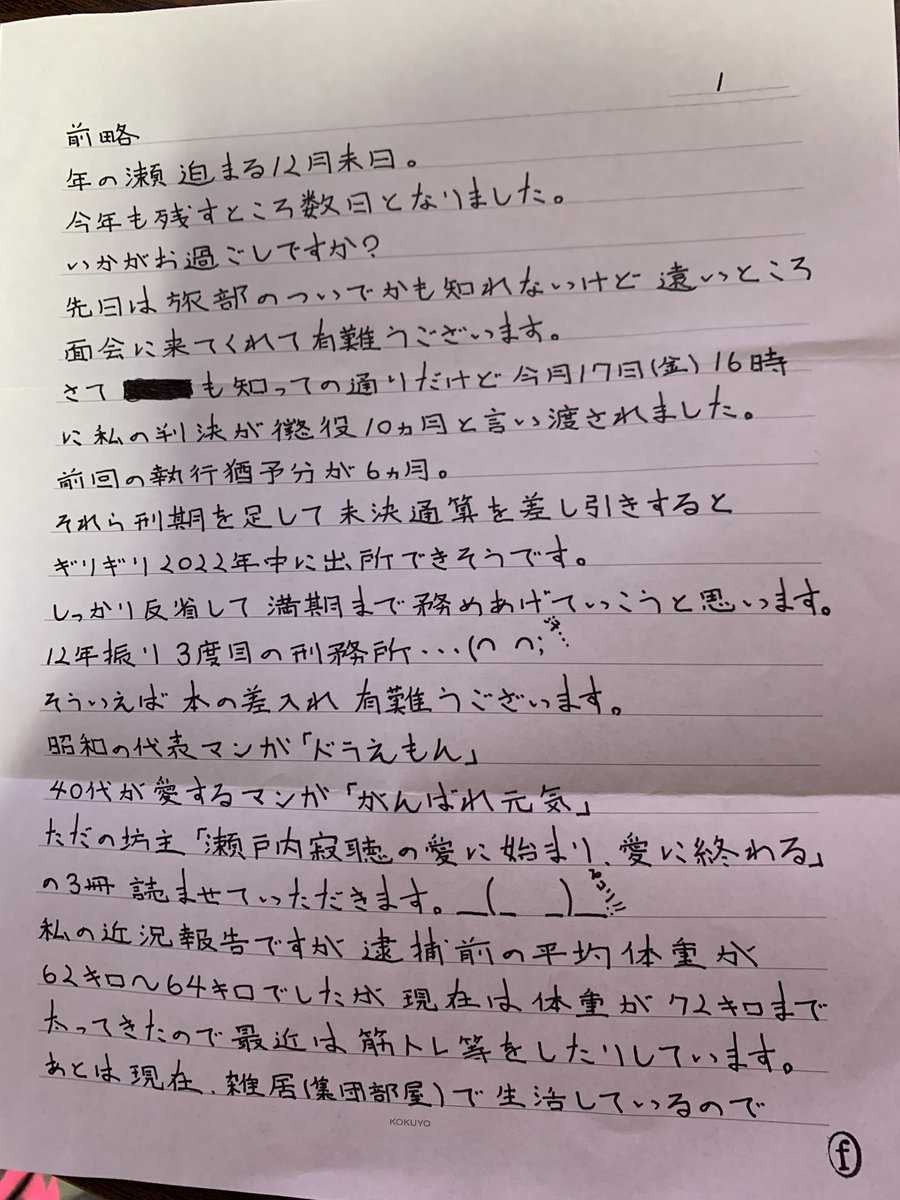 1
前略
年の瀬迫まる12月末日。
今年も残すところ数日となりました。
いかがお過ごしですか?
先日は旅部のついでかも知れないけど 遠いところ
面会に来てくれて有難うございます。
さて も知っての通りだけど今月17日(金)16時
に私の判決が懲役10ヵ月と言い渡されました。
前回の執行猶予分が6ヵ月。
それら刑期を足して未決通算を差し引きすると
ギリギリ2022年中に出所できそうです。
しっかり反省して満期まで務めあげていこうと思います。
12年振り3度目の刑務所…(∩ ∩;
そういえば 本の差入れ 有難うございます。
昭和の代表マンガ「ドラえもん」
40代が愛するマンガ「がんばれ元気」
ただの坊主「瀬戸内寂聴の愛に始まり、愛に終わる」
の3冊 読ませていただきます。_(_ _)_ ペコリ!!
私の近況報告ですが 逮捕前の平均体重が
62キロ〜64キロでしたが 現在は体重が72キロまで
太ってきたので最近は筋トレ等をしたりしています。
あとは現在、雑居(集団部屋)で生活しているので
KOKUYO
f